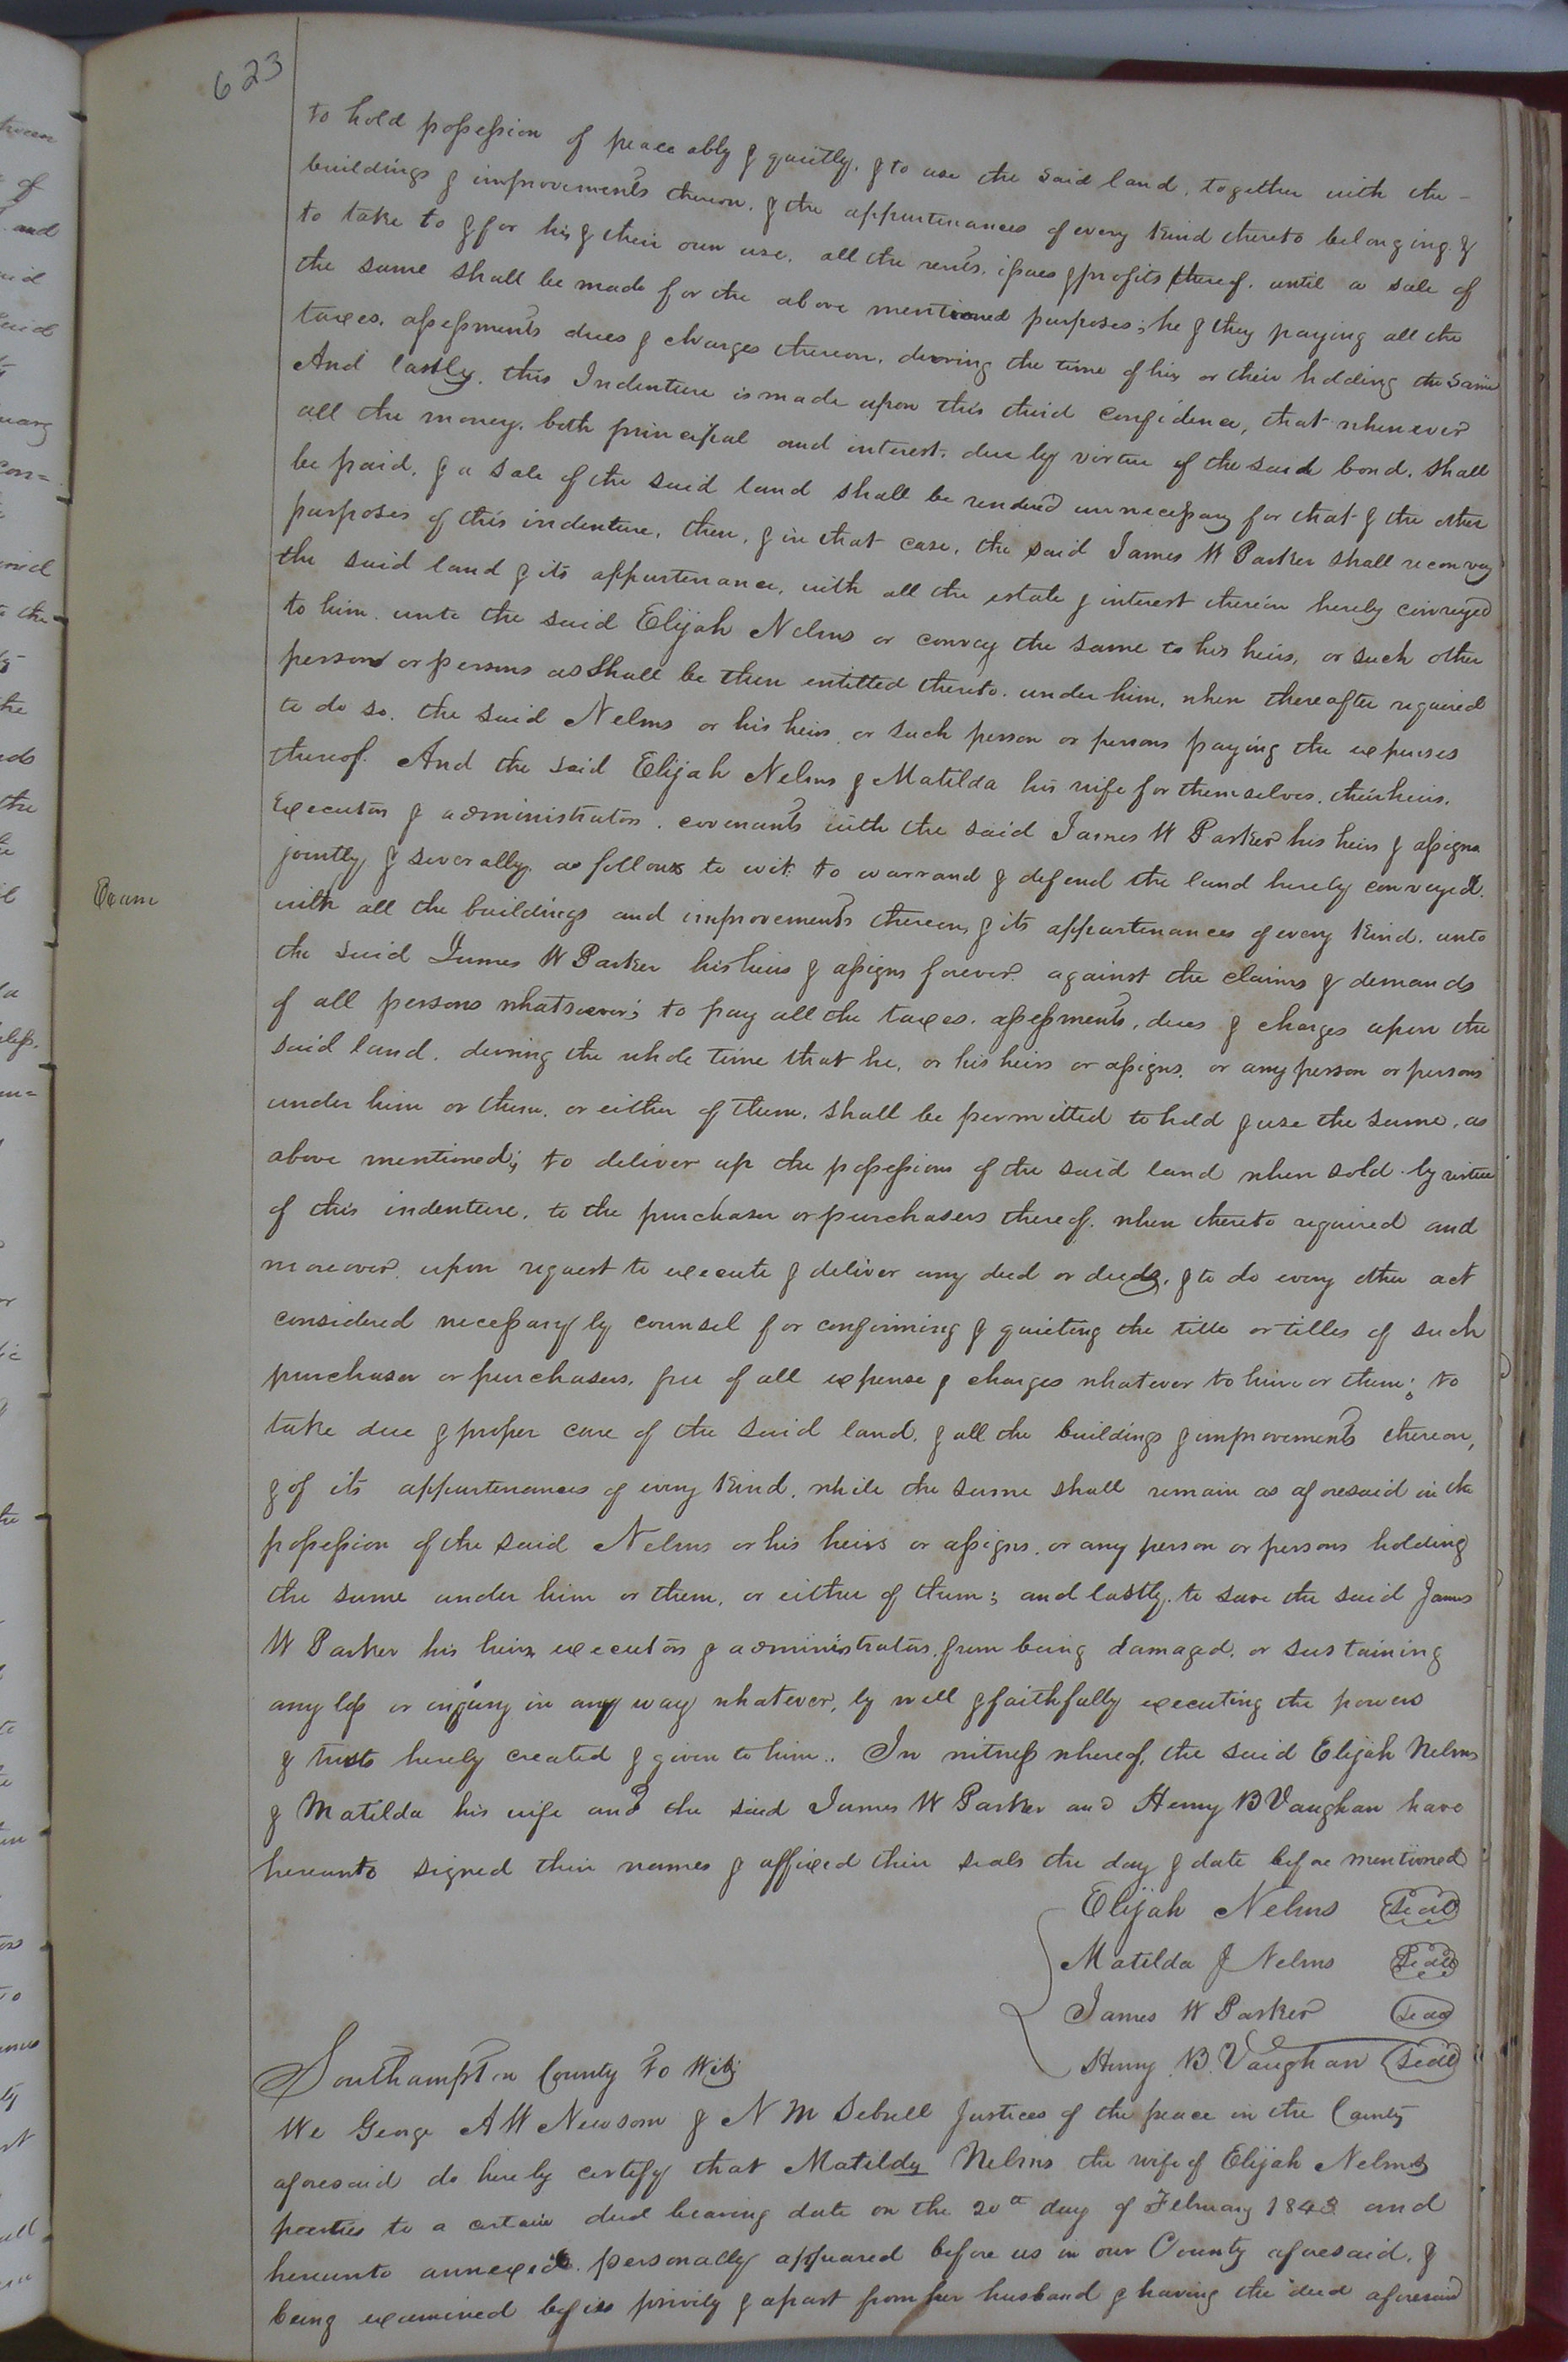 623
to hold possession of peaceably & quietly, & to use the said land, together with the -
buildings & improvements thereon, & the appurtenances of every kind thereto belonging, &
to take to & for his & their own use, all the rents, issues & profits thereof, until a sale of
the same shall be made for the above mentioned purposes; he & they paying all the
taxes, assessments dues & charges thereon, during the time of his or their holding the same
And lastly, this Indenture is made upon this third confidence, that whenever
all the money, both principal and interest, due by virtue of the said bond, shall
be paid, & a sale of the said land shall be rendered unnecessary for that & the other
purposes of this indenture, then, & in that case, the said James W Parker shall reconvey
the said land & its appurtenance, with all the estate & interest therein hereby conveyed
to him, unto the said Elijah Nelms or convey the same to his heirs, or such other
person or persons as shall be then entitled thereto, under him, when thereafter required
to do so, the said Nelms or his heirs, or such person or persons paying the expenses
thereof. And the said Elijah Nelms & Matilda his wife for themselves, their heirs,
Executors & administrators, covenants with the said James W Parker his heirs & assigns
jointly & severally, as follows to wit: to warrand & defend the land hereby conveyed,
Exam
with all the buildings and improvements thereon, & its appurtenances of every kind, unto
the said James W Parker his heirs & assigns forever, against the claims & demands
of all persons whatsoever; to pay all the taxes, assessments, dues & charges upon the
said land, during the whole time that he, or his heirs or assigns, or any person or persons
under him or them, or either of them, shall be permitted to hold & use the same, as
above mentioned; to deliver up the possessions of the said land when sold by virtue
of this indenture, to the purchaser or purchasers thereof, when thereto required and
moreover, upon request to execute & deliver any deed or deeds, & to do every other act
considered necessary by counsel for confirming & quieting the title or titles of such
purchaser or purchasers, free of all expense & charges whatever to him or them; to
take due & proper care of the said land, & all the buildings & improvements thereon,
& of its appurtenances of every kind, while the same shall remain as aforesaid in the
possession of the said Nelms or his heirs or assigns, or any person or persons holding
the same under him or them, or either of them; and lastly, to save the said James
W Parker his heirs executors & administrators, from being damaged, or sustaining
any loss or injury in any way whatever, by well & faithfully executing the powers
& trusts hereby created & given to him.. In witness whereof, the said Elijah Nelms
& Matilda his wife and the said James W Parker and Henry B Vaughan have
hereunto signed their names & affixed their seals the day & date before mentioned
Elijah Nelms Seal
Matilda J Nelms Seal
James W Parker Seal
Henry B. Vaughan Seal
Southampton County To Wit;
We George A W Newsom & N M Sebrell Justices of the peace in the County
aforesaid do hereby certify that Matildy Nelms the wife of Elijah Nelms
parties to a certain deed bearing date on the 20th day of February 1843 and
hereunto annexed, personally appeared before us in our County aforesaid, &
being examined by us privily & apart from her husband & having the deed aforesaid